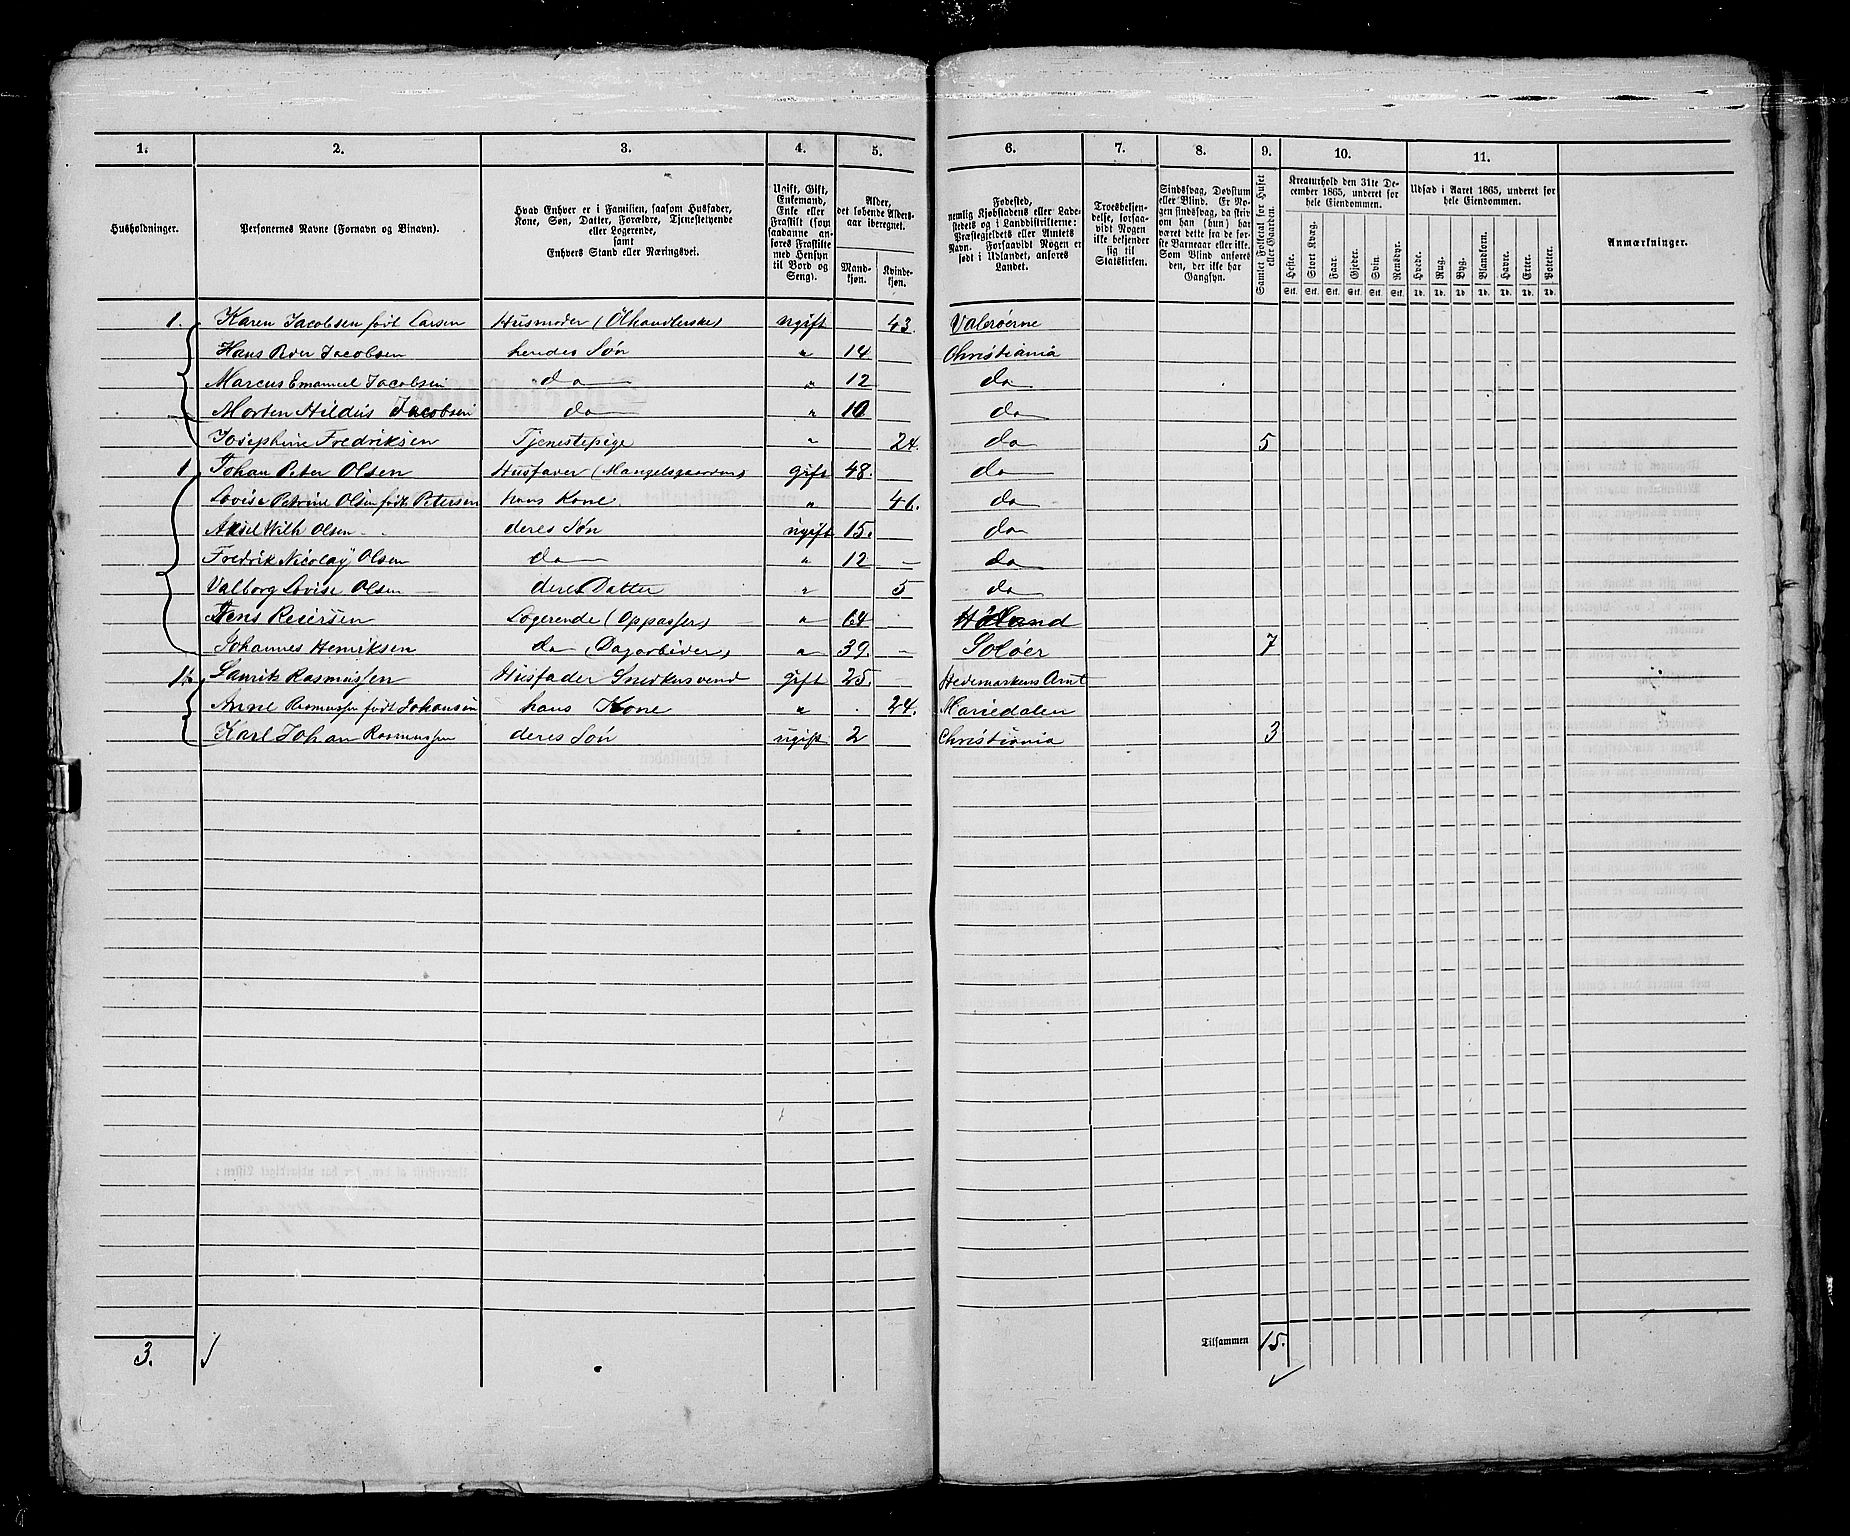 1. 2. 3. 4. 5. 6. 7. 8. 9. 10. 11.
Husholdninger.
Personernes Navne (Fornavn og Binavn).
Hvad Enhver er i Familien, saasom Husfader,
Kone, Søn, Datter, Forældre, Tjenestetyende
eller Logerende,
samt
Enhvers Stand eller Næringsvei.
Ugift, Gift,
Enkemand,
Enke eller
Fraskilt (som
saadanne an-
føres Fraskilte
med Hensyn
til Bord og
Seng).
Alder,
det løbende Alders-
aar iberegnet.
Mand-
kjøn.
Kvinde-
kjøn.
Fødested,
nemlig Kjøbstadens eller Lade-
stedets og i Landdistrikterne:
Præstegjeldets eller Amtets
Navn. Forsaavidt Nogen er
født i Udlandet, anføres
Landet.
Troesbekjen-
delse, forsaa-
vidt Nogen
ikke bekjender
sig til
Statskirken.
Sindssvag, Døvstum
eller Blind. Er No-
gen sindssvag, da skriv
om han (hun) har
været dette fra de før-
ste Barneaar eller ikke.
Som Blind anføres
den, der ikke har
Gangsyn.
Samlet Folketal for Huset
eller Gaarden.
Kreaturhold den 31te De-
cember 1865, underet for
hele Eiendommen.
Heste. Stort Kvæg. Faar. Gjeder. Svin. Rensdyr.
Stk. Stk. Stk. Stk. Stk. Stk.
Udsæd i Aaret 1865, underet for
hele Eiendommen.
Hvede. Rug. Byg. Blandkorn. Havre. Erter. Poteter.
Td. Td. Td. Td. Td. Td. Td.
Anmærkninger.
1. Karen Jacobsen født Larsen Husmoder (Ølhandlerske) ugift 43. Valerøerne
Hans Jacobsen hendes Søn " 14 Christiania
Marcus Emanuel Jacobsen do " 12 do
Morten Jacobsen do " 10 do
Josephine Fredriksen Tjenestepige " 24. do 5
1 Johan Peter Olsen Husfader gift 48. do
Lovise Petrine Olsen født Petersen hans Kone " 46. do
Axel Wilh Olsen deres Søn ugift 15. do
Fredrik Nicolay Olsen do " 12 do
Valborg Lovise Olsen deres Datter " 5 do
Jens Logerende (Oppasser) " 64 Høland
Johannes Henriksen do (Dagarbeider) " 39. Soløer 7
1. Rasmussen Husfader Snedkersvend gift 25. Hedemarkens Amt
Anne Rasmussen født Johansen hans Kone " 24. Mariedalen
Karl Johan Rasmussen deres Søn ugift 2 Christiania 3
3.
Tilsammen 15.